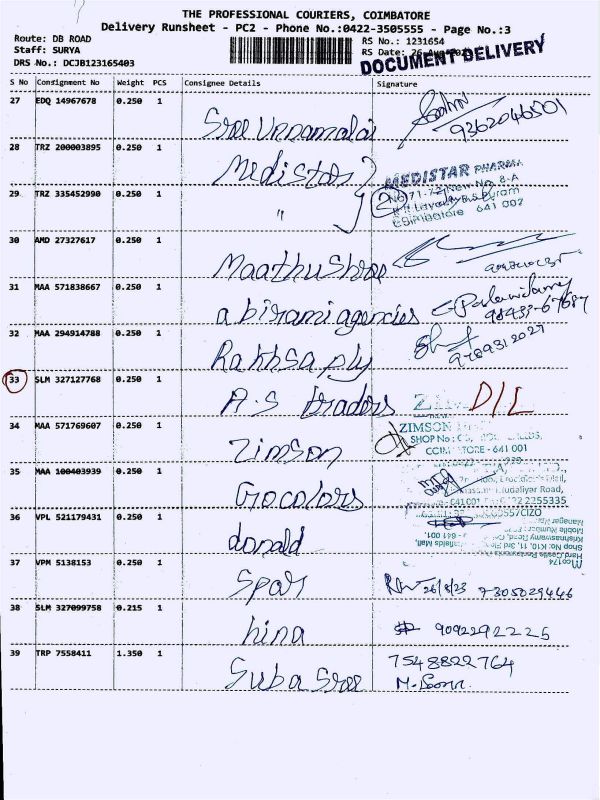 THE PROFESSIONAL COURIERS, COIMBATORE
Delivery Runsheet - PC2 - Phone No.:0422-3505555 - Page No.:3
Route: DB ROAD
Staff: SURYA
DRS No.: DCJB123165403
RS No.: 1231654
RS Date: 26-Aug
DOCUMENT DELIVERY
S No Consignment No Weight PCS Consignee Details Signature
27 EDQ 14967678 0.250 1 Sree Unnamalai 9362046501
28 TRZ 200003895 0.250 1 Medistar
MEDISTAR PHARMA
29 TRZ 335452990 0.250 1 "
No.71-72, New No. 8-A
B.S. Puram
Coimbatore 641 002
30 AMD 27327617 0.250 1 Maathushree
31 MAA 571838667 0.250 1 abirami agencies 98433-67687
32 MAA 294914788 0.250 1 Rakhsa ply 9789312027
33 SLM 327127768 0.250 1 A.S traders D/L
34 MAA 571769607 0.250 1 Zimson
ZIMSON
SHOP No:
COIMBATORE - 641 001
35 MAA 100403939 0.250 1 Go colors
Mudaliyar Road,
641 001
2255335
36 VPL 521179431 0.250 1 donald
Moo174
Hard Castle Restaurants
Shop No: K10, 11, 3rd Floor
Krishnaswamy Road,
- 641 001.
37 VPM 5138153 0.250 1 Spar 26/8/23 7305029446
38 SLM 327099758 0.215 1 hina 9092292225
39 TRP 7558411 1.350 1 Suba Sree 7548822764